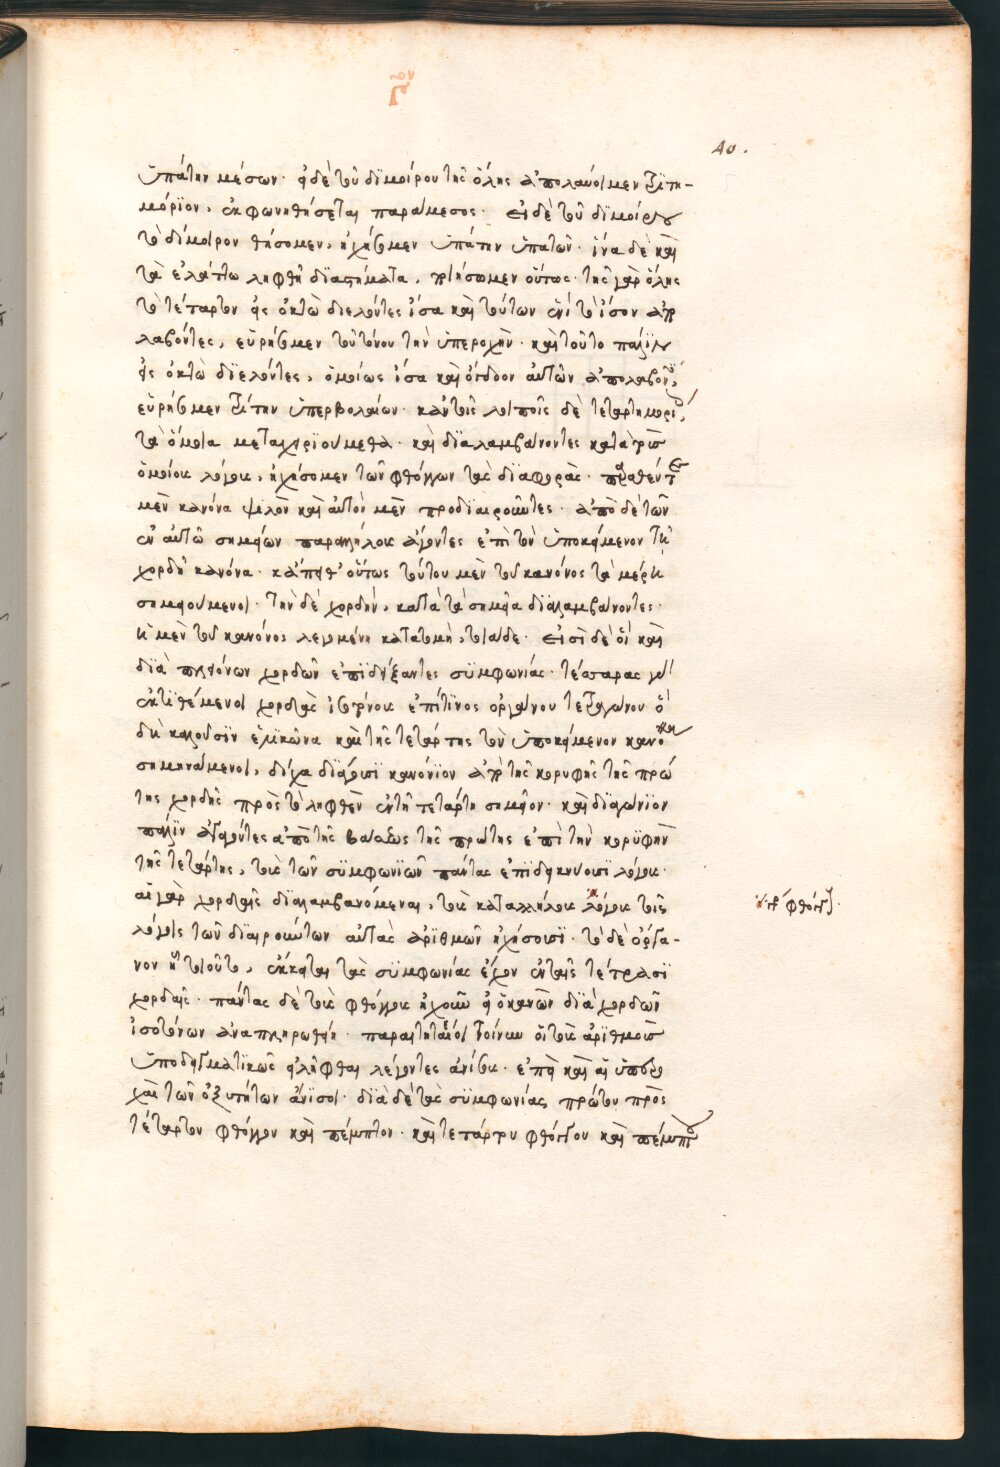 40.
ὑπάτην μέσων· εἰ δὲ τοῦ διμοίρου τῆς ὅλης ἀπολαύοιμεν τριτη-
μόριον, ἐκφωνηθήσεται παράμεσος· εἰ δὲ τοῦ διμοίρου
τὸ δίμοιρον θήσομεν, ἠχήσομεν ὑπάτην ὑπατῶν· ἵνα δὲ καὶ
τὰ ἐλάττω ληφθῇ διαστήματα, ποιήσωμεν οὕτως· τῆς γὰρ ὅλης
τὸ τέταρτον εἰς ὀκτὼ διελόντες ἴσα καὶ τούτων ἑνὶ τὸ ἴσον
λαβόντες, εὑρήσομεν τοῦ τόνου τὴν ὑπεροχήν· καὶ τοῦτο πάλιν
εἰς ὀκτὼ διελόντες, ὁμοίως ἴσα καὶ ὄγδοον αὐτῶν ἀπολαβόντες,
εὑρήσομεν τρίτην ὑπερβολαίων· κἀν τοῖς λοιποῖς δὲ τεταρτημορίοις,
τὰ ὅμοια μεταχειριούμεθα· καὶ διαλαμβάνοντες κατὰ
ὁμοίους λόγους, ἠχήσομεν τῶν φθόγγων τὰς διαφοράς·
μὲν κανόνα ψιλὸν καὶ αὐτὸν μὲν προδιαιροῦντες· ἀπὸ δὲ τῶν
ἐν αὐτῷ σημείων παραλλήλους ἄγοντες ἐπὶ τὸν ὑποκείμενον τῇ
χορδῇ κανόνα· κἄπειθ' οὕτως τούτου μὲν τοῦ κανόνος τὰ μέρη
σημειούμενοι· τὴν δὲ χορδήν, κατὰ τὰ σημεῖα διαλαμβάνοντες·
ἡ μὲν τοῦ κανόνος λεγομένη κατατομή, τοιάδε· εἰσὶ δὲ οἳ καὶ
διὰ πλειόνων χορδῶν ἐπιδείξαντες συμφωνίας· τέσσαρας μὲν
ἐκτιθέμενοι χορδὰς ἰσοτόνους ἐπί τινος ὀργάνου τετραγώνου ὃ
δὴ καλοῦσιν ἑλικῶνα καὶ τῆς τετάρτης τὸν ὑποκείμενον κανόνα
σημηνάμενοι, δίχα διάγουσι κανόνιον ἀπὸ τῆς κορυφῆς τῆς πρώ
της χορδῆς πρὸς τὸ ληφθὲν ἐν τῇ τετάρτῃ σημεῖον· καὶ διαγώνιον
πάλιν ἀγαγόντες ἀπὸ τῆς βάσεως τῆς πρώτης ἐπὶ τὴν κορυφὴν
τῆς τετάρτης, τοὺς τῶν συμφωνιῶν πάντας ἐπιδεικνύουσι λόγους·
αἱ γὰρ χορδαὶ διαλαμβανόμεναι, τοὺς καταλλήλους λόγους τοῖς
λόγοις τῶν διαιρούντων αὐτὰς ἀριθμῶν ἠχήσουσι· τὸ δὲ ὄργα-
νον ἢ τοιοῦτο, ἔγκειται τὰς συμφωνίας ἔχον ἐν ταῖς τέτρασι
χορδαῖς· πάντας δὲ τοὺς φθόγγους ἠχοῦν εἰ ὁ κανὼν διὰ χορδῶν
ἰσοτόνων ἀναπληρωθείη· παραιτητέοι τοίνυν οἱ τοὺς ἀριθμοὺς
ὑποδειγματικῶς εἰλῆφθαι λέγοντες ἀνίσους· ἐπεὶ καὶ αἱ ὑπερο
χαὶ τῶν ὀξυτήτων ἄνισοι· διὰ δὲ τὰς συμφωνίας πρῶτον πρὸς
τέταρτον φθόγγον καὶ πέμπτον· καὶ τετάρτου φθόγγου καὶ πέμπτου